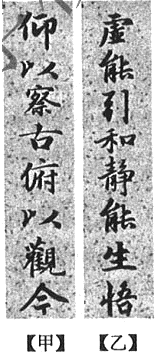 虚能引和静能生悟
仰以察古俯以觀今
【乙】
【甲】